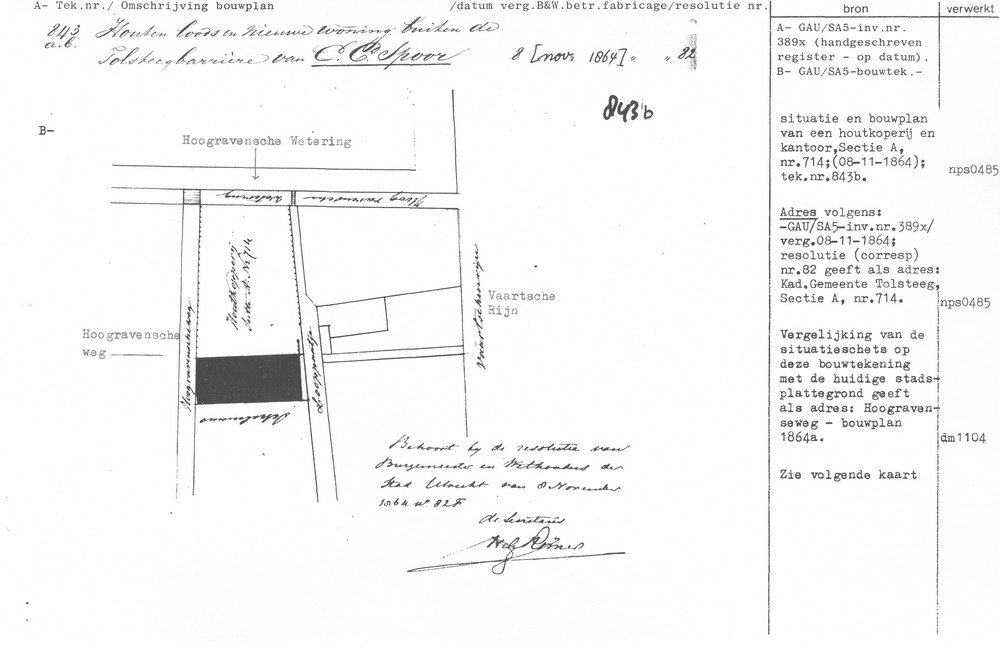 A- Tek.nr./ Omschrijving bouwplan /datum verg.B&W.betr.fabricage/resolutie nr.
bron
verwerkt
843 Houten loods en nieuwe woning buiten de
a.b. Tolsteegbarrière van C. C. Spoor 8 [nov. 1864] „ „ 82
843b
B-
Hoogravensche Wetering
Hoogravensche
Wetering
Houtkooperij
Sectie A. No 714
Hoogravenscheweg
Looppaadje
Vaartscherijn
Vaartsche
Rijn
Hoogravensche
weg
Behoort bij de resolutie van
Burgemeester en Wethouders der
Stad Utrecht van 8 November
1864 No 82F
de Secretaris
A- GAU/SA5-inv.nr.
389x (handgeschreven
register - op datum).
B- GAU/SA5-bouwtek.-
situatie en bouwplan
van een houtkoperij en
kantoor,Sectie A,
nr.714;(08-11-1864);
tek.nr.843b.
nps0485
Adres volgens:
-GAU/SA5-inv.nr.389x/
verg.08-11-1864;
resolutie (corresp)
nr.82 geeft als adres:
Kad.Gemeente Tolsteeg,
Sectie A, nr.714.
nps0485
Vergelijking van de
situatieschets op
deze bouwtekening
met de huidige stads-
plattegrond geeft
als adres: Hoograven-
seweg - bouwplan
1864a.
dm1104
Zie volgende kaart